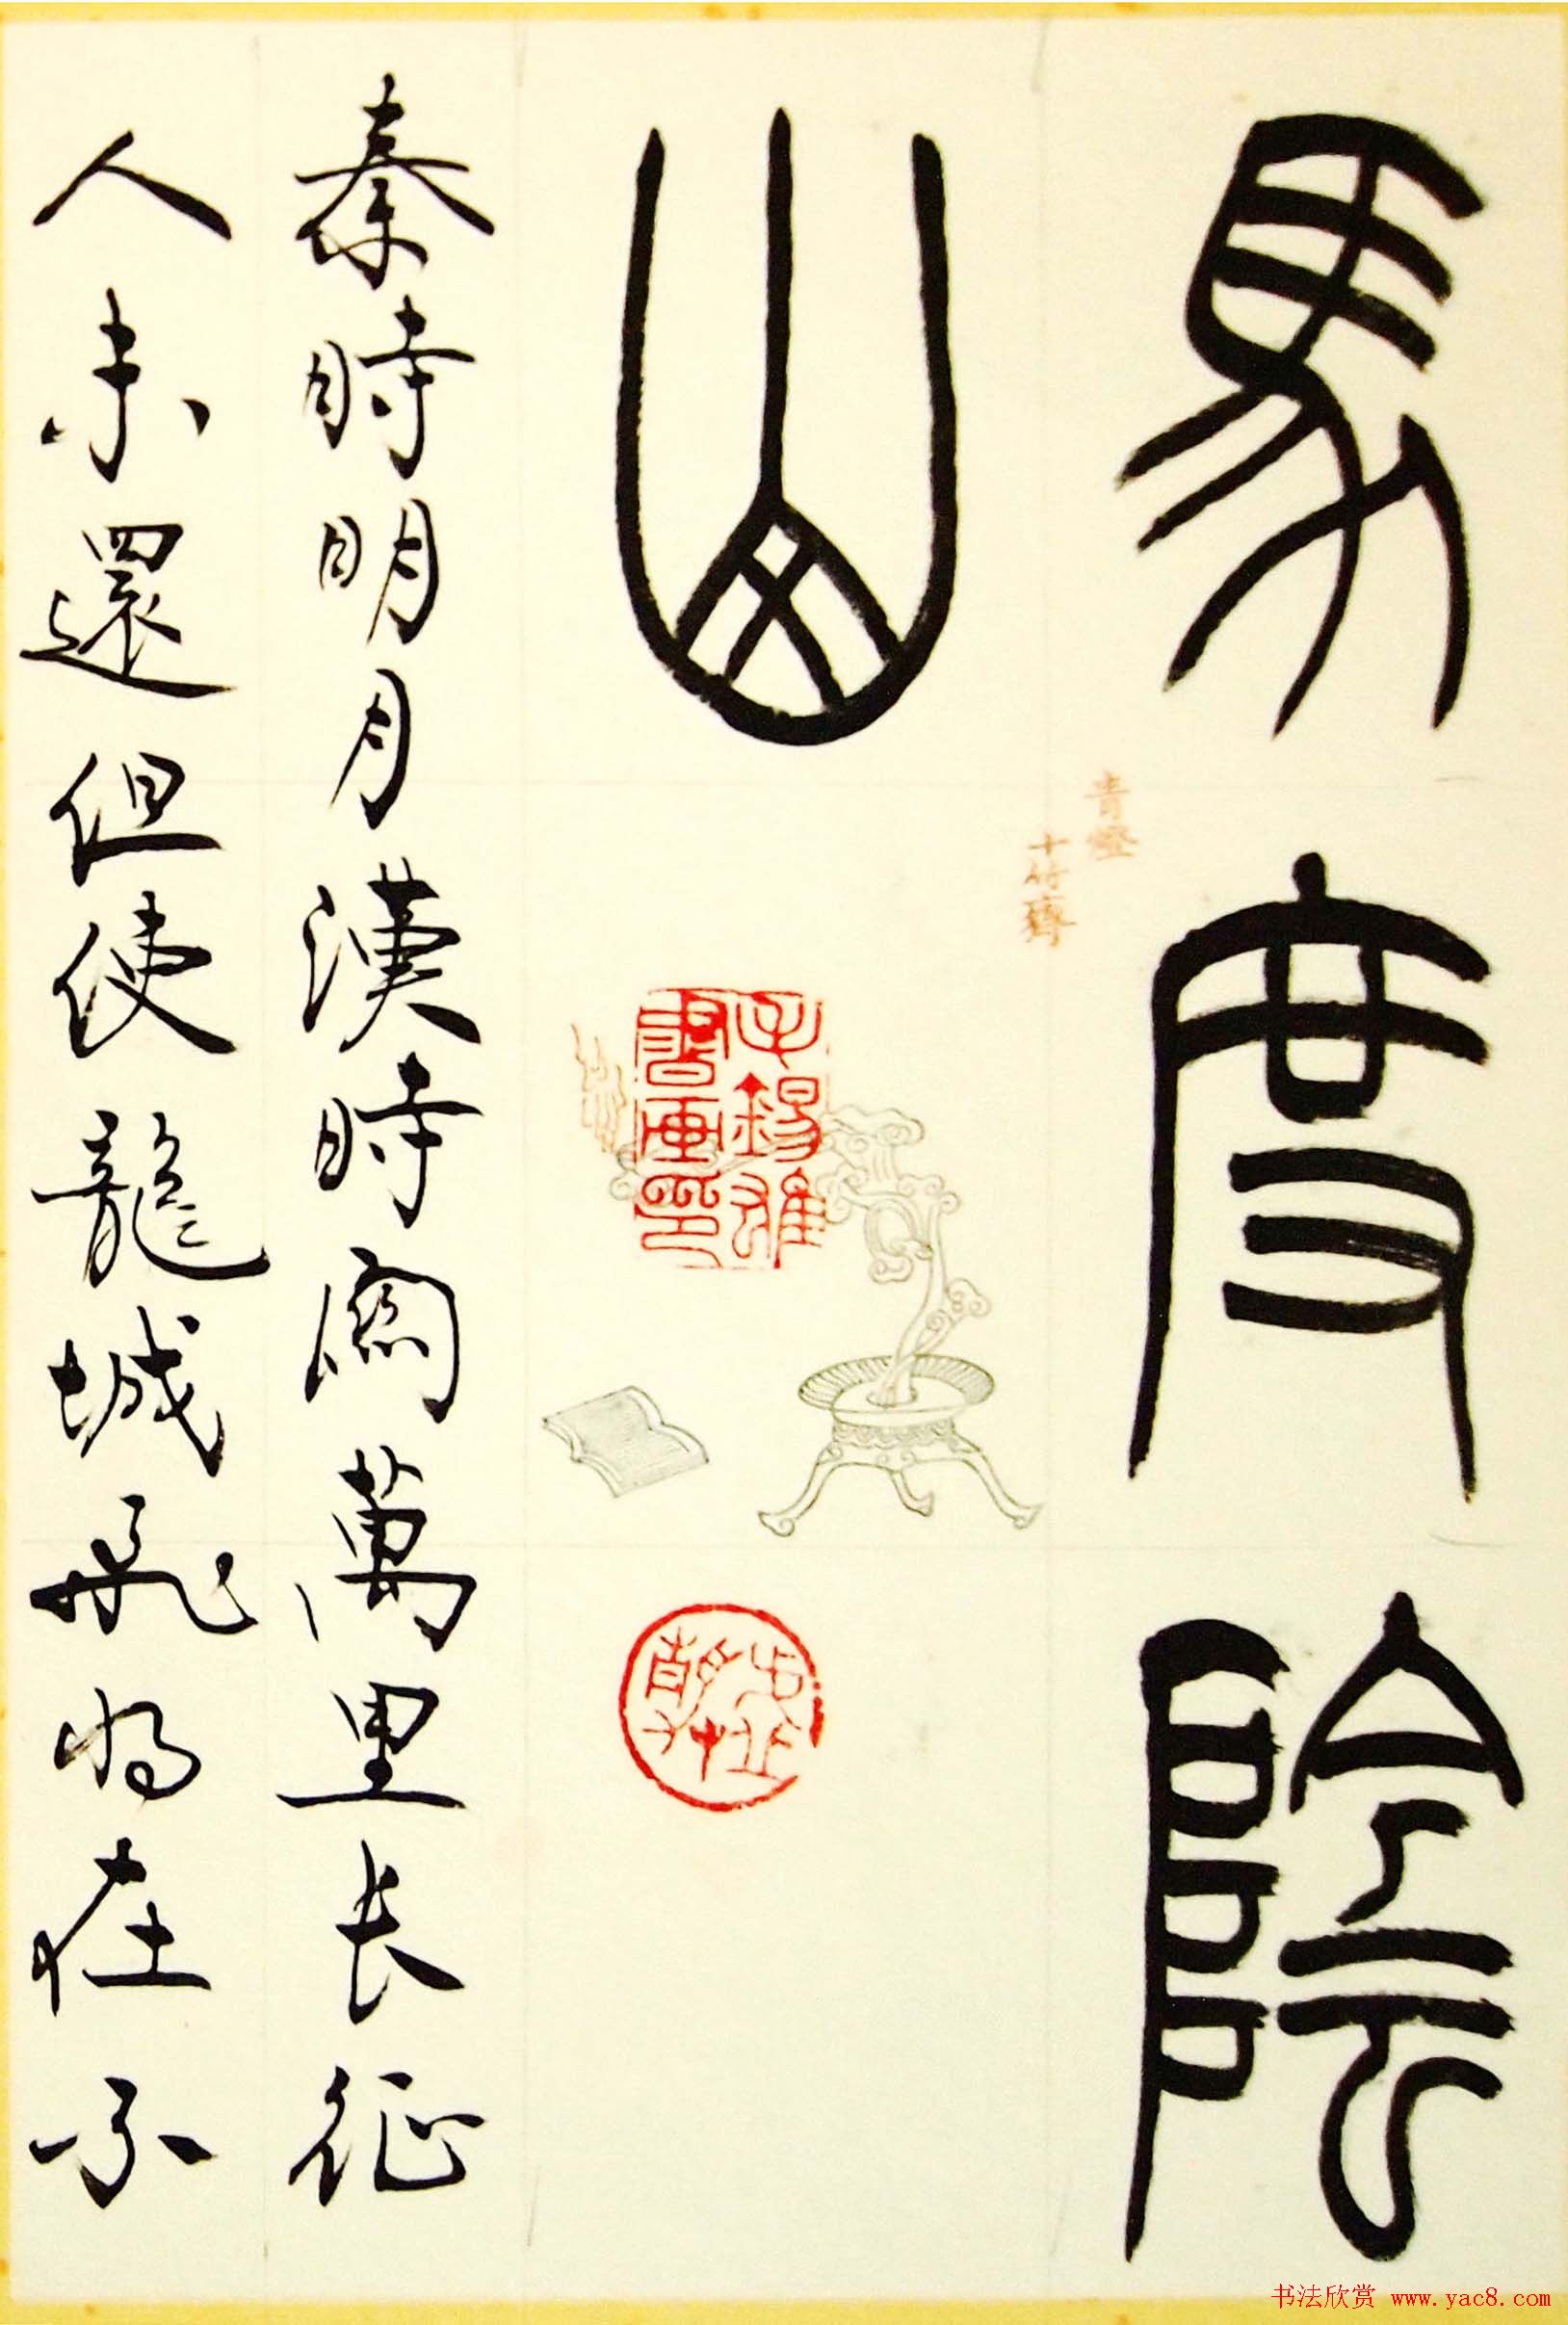 馬度陰
山
秦時明月漢時關萬里長征
人未還但使龍城飛將在不
青燈
十竹齋
书法欣赏 www.yac8.com